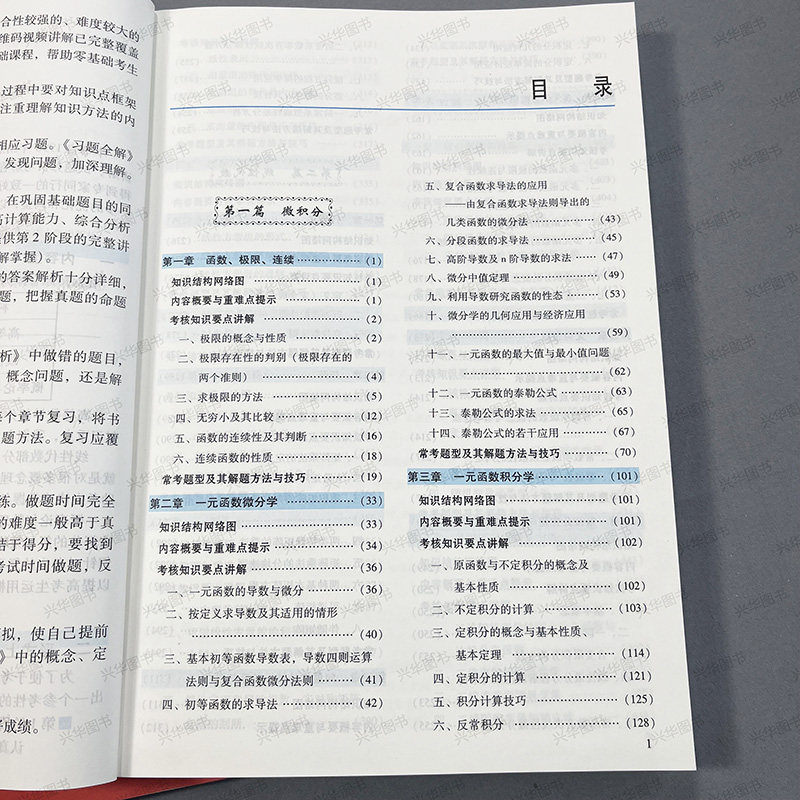 合性较强的、难度较大的
维码视频讲解已完整覆盖
础课程，帮助零基础考生
过程中要对知识点框架
注重理解知识方法的内
相应习题。《习题全解》
发现问题，加深理解。
在巩固基础题目的同
高计算能力、综合分析
供第2阶段的完整讲
解掌握）。
的答案解析十分详细，
题，把握真题的命题
析》中做错的题目，
概念问题，还是解
每个章节复习，将书
题方法。复习应覆
练。做题时间完全
的难度一般高于真
结于得分，要找到
考试时间做题，反
拟，使自己提前
》中的概念、定
好成绩。
目 录
第一篇 微积分
第一章 函数、极限、连续 ……………… (1)
知识结构网络图 ……………… (1)
内容概要与重难点提示 ……………… (1)
考核知识要点讲解 ……………… (2)
一、极限的概念与性质 ……………… (2)
二、极限存在性的判别（极限存在的
两个准则） ……………… (4)
三、求极限的方法 ……………… (5)
四、无穷小及其比较 ……………… (12)
五、函数的连续性及其判断 ……………… (16)
六、连续函数的性质 ……………… (18)
常考题型及其解题方法与技巧 ……………… (19)
第二章 一元函数微分学 ……………… (33)
知识结构网络图 ……………… (33)
内容概要与重难点提示 ……………… (34)
考核知识要点讲解 ……………… (36)
一、一元函数的导数与微分 ……………… (36)
二、按定义求导数及其适用的情形
……………… (40)
三、基本初等函数导数表，导数四则运算
法则与复合函数微分法则 ……………… (41)
四、初等函数的求导法 ……………… (42)
五、复合函数求导法的应用
——由复合函数求导法则导出的
几类函数的微分法 ……………… (43)
六、分段函数的求导法 ……………… (45)
七、高阶导数及n阶导数的求法 ……………… (47)
八、微分中值定理 ……………… (49)
九、利用导数研究函数的性态 ……………… (53)
十、微分学的几何应用与经济应用
……………… (59)
十一、一元函数的最大值与最小值问题
……………… (62)
十二、一元函数的泰勒公式 ……………… (63)
十三、泰勒公式的求法 ……………… (65)
十四、泰勒公式的若干应用 ……………… (67)
常考题型及其解题方法与技巧 ……………… (70)
第三章 一元函数积分学 ……………… (101)
知识结构网络图 ……………… (101)
内容概要与重难点提示 ……………… (101)
考核知识要点讲解 ……………… (102)
一、原函数与不定积分的概念及
基本性质 ……………… (102)
二、不定积分的计算 ……………… (103)
三、定积分的概念与基本性质、
基本定理 ……………… (114)
四、定积分的计算 ……………… (121)
五、积分计算技巧 ……………… (125)
六、反常积分 ……………… (128)
1
兴华图书